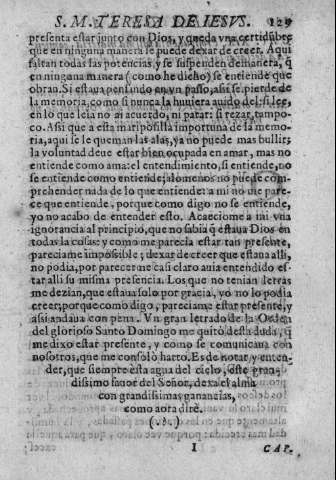 S. M. TERESA DE IESVS. 129
presenta estar junto con Dios, y queda vna certidũbre
que en ninguna manera se puede dexar de creer. Aqui
faltan todas las potencias, y se suspenden demanera, q̃
en ninguna manera (como he dicho) se entiende que
obran. Si estaua pensando en vn passo, assi se pierde de
la memoria, como si nunca la huuiera auido del: si lee,
en lo que leía no ai acuerdo, ni parar: si rezar, tampo-
co. Assi que a esta mariposilla importuna de la memo-
ria, aqui se le queman las alas, ya no puede mas bullir;
la voluntad deue estar bien ocupada en amar, mas no
entiende como ama: el entendimiento, si entiende, no
se entiende como entiende; alomenos no puede com-
prehender nada de lo que entiende: a mi no me pare-
ce que entiende, porque como digo no se entiende,
yo no acabo de entender esto. Acaecióme a mi vna
ignorancia al principio, que no sabia q̃ estaua Dios en
todas la cosas: y como me parecia estar tan presente,
pareciame impossible; dexar de creer que estaua alli,
no podia, por parecerme casi claro auia entendido es-
tar alli su misma presencia. Los que no tenian letras
me dezian, que estaua solo por gracia, yo no lo podia
creer, porque como digo, pareciame estar presente, y
assi andaua con pena. Vn gran letrado de la Orden
del glorioso Santo Domingo me quitò desta duda, q̃
me dixo estar presente, y como se comunicaua con
nosotros, que me consolò harto. Es de notar, y enten-
der, que siempre esta agua del cielo, este gran-
dissimo fauor del Señor, dexa el alma
con grandissimas ganancias,
como aora dirè.
(.?.)
I CAP.